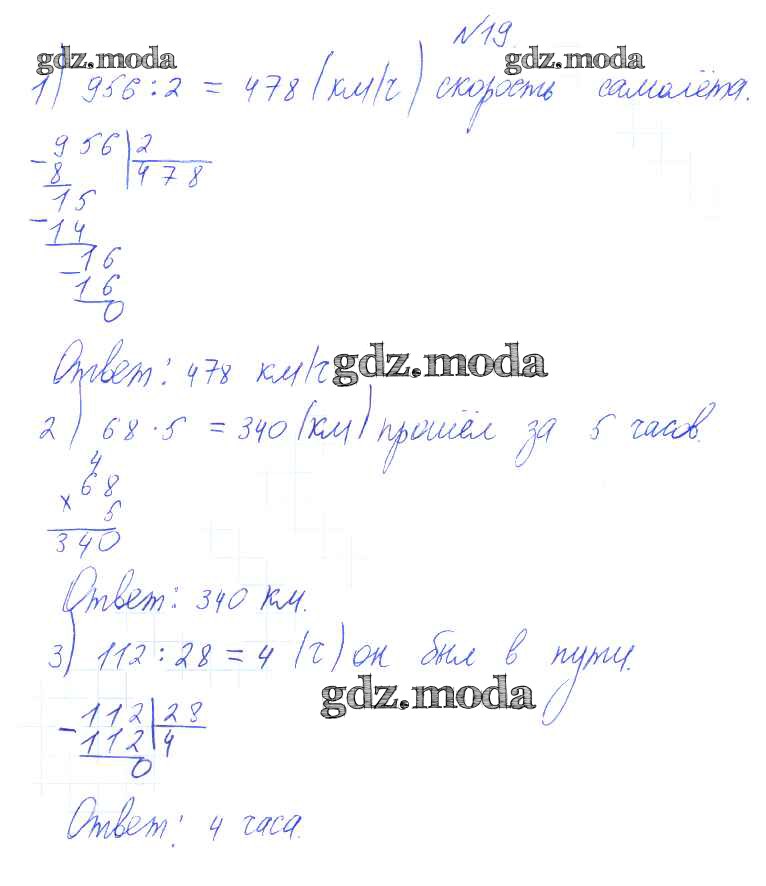 N19.
gdz.moda gdz.moda
1) 956 : 2 = 478 (км/ч) скорость самолёта.
- 956 | 2
8 | 478
15
- 14
16
- 16
0
Ответ: 478 км/ч
gdz.moda
2) 68 · 5 = 340 (км) прошёл за 5 часов.
4
× 68
5
340
Ответ: 340 км.
3) 112 : 28 = 4 (ч) он был в пути.
gdz.moda
- 112 | 28
112 | 4
0
Ответ: 4 часа.